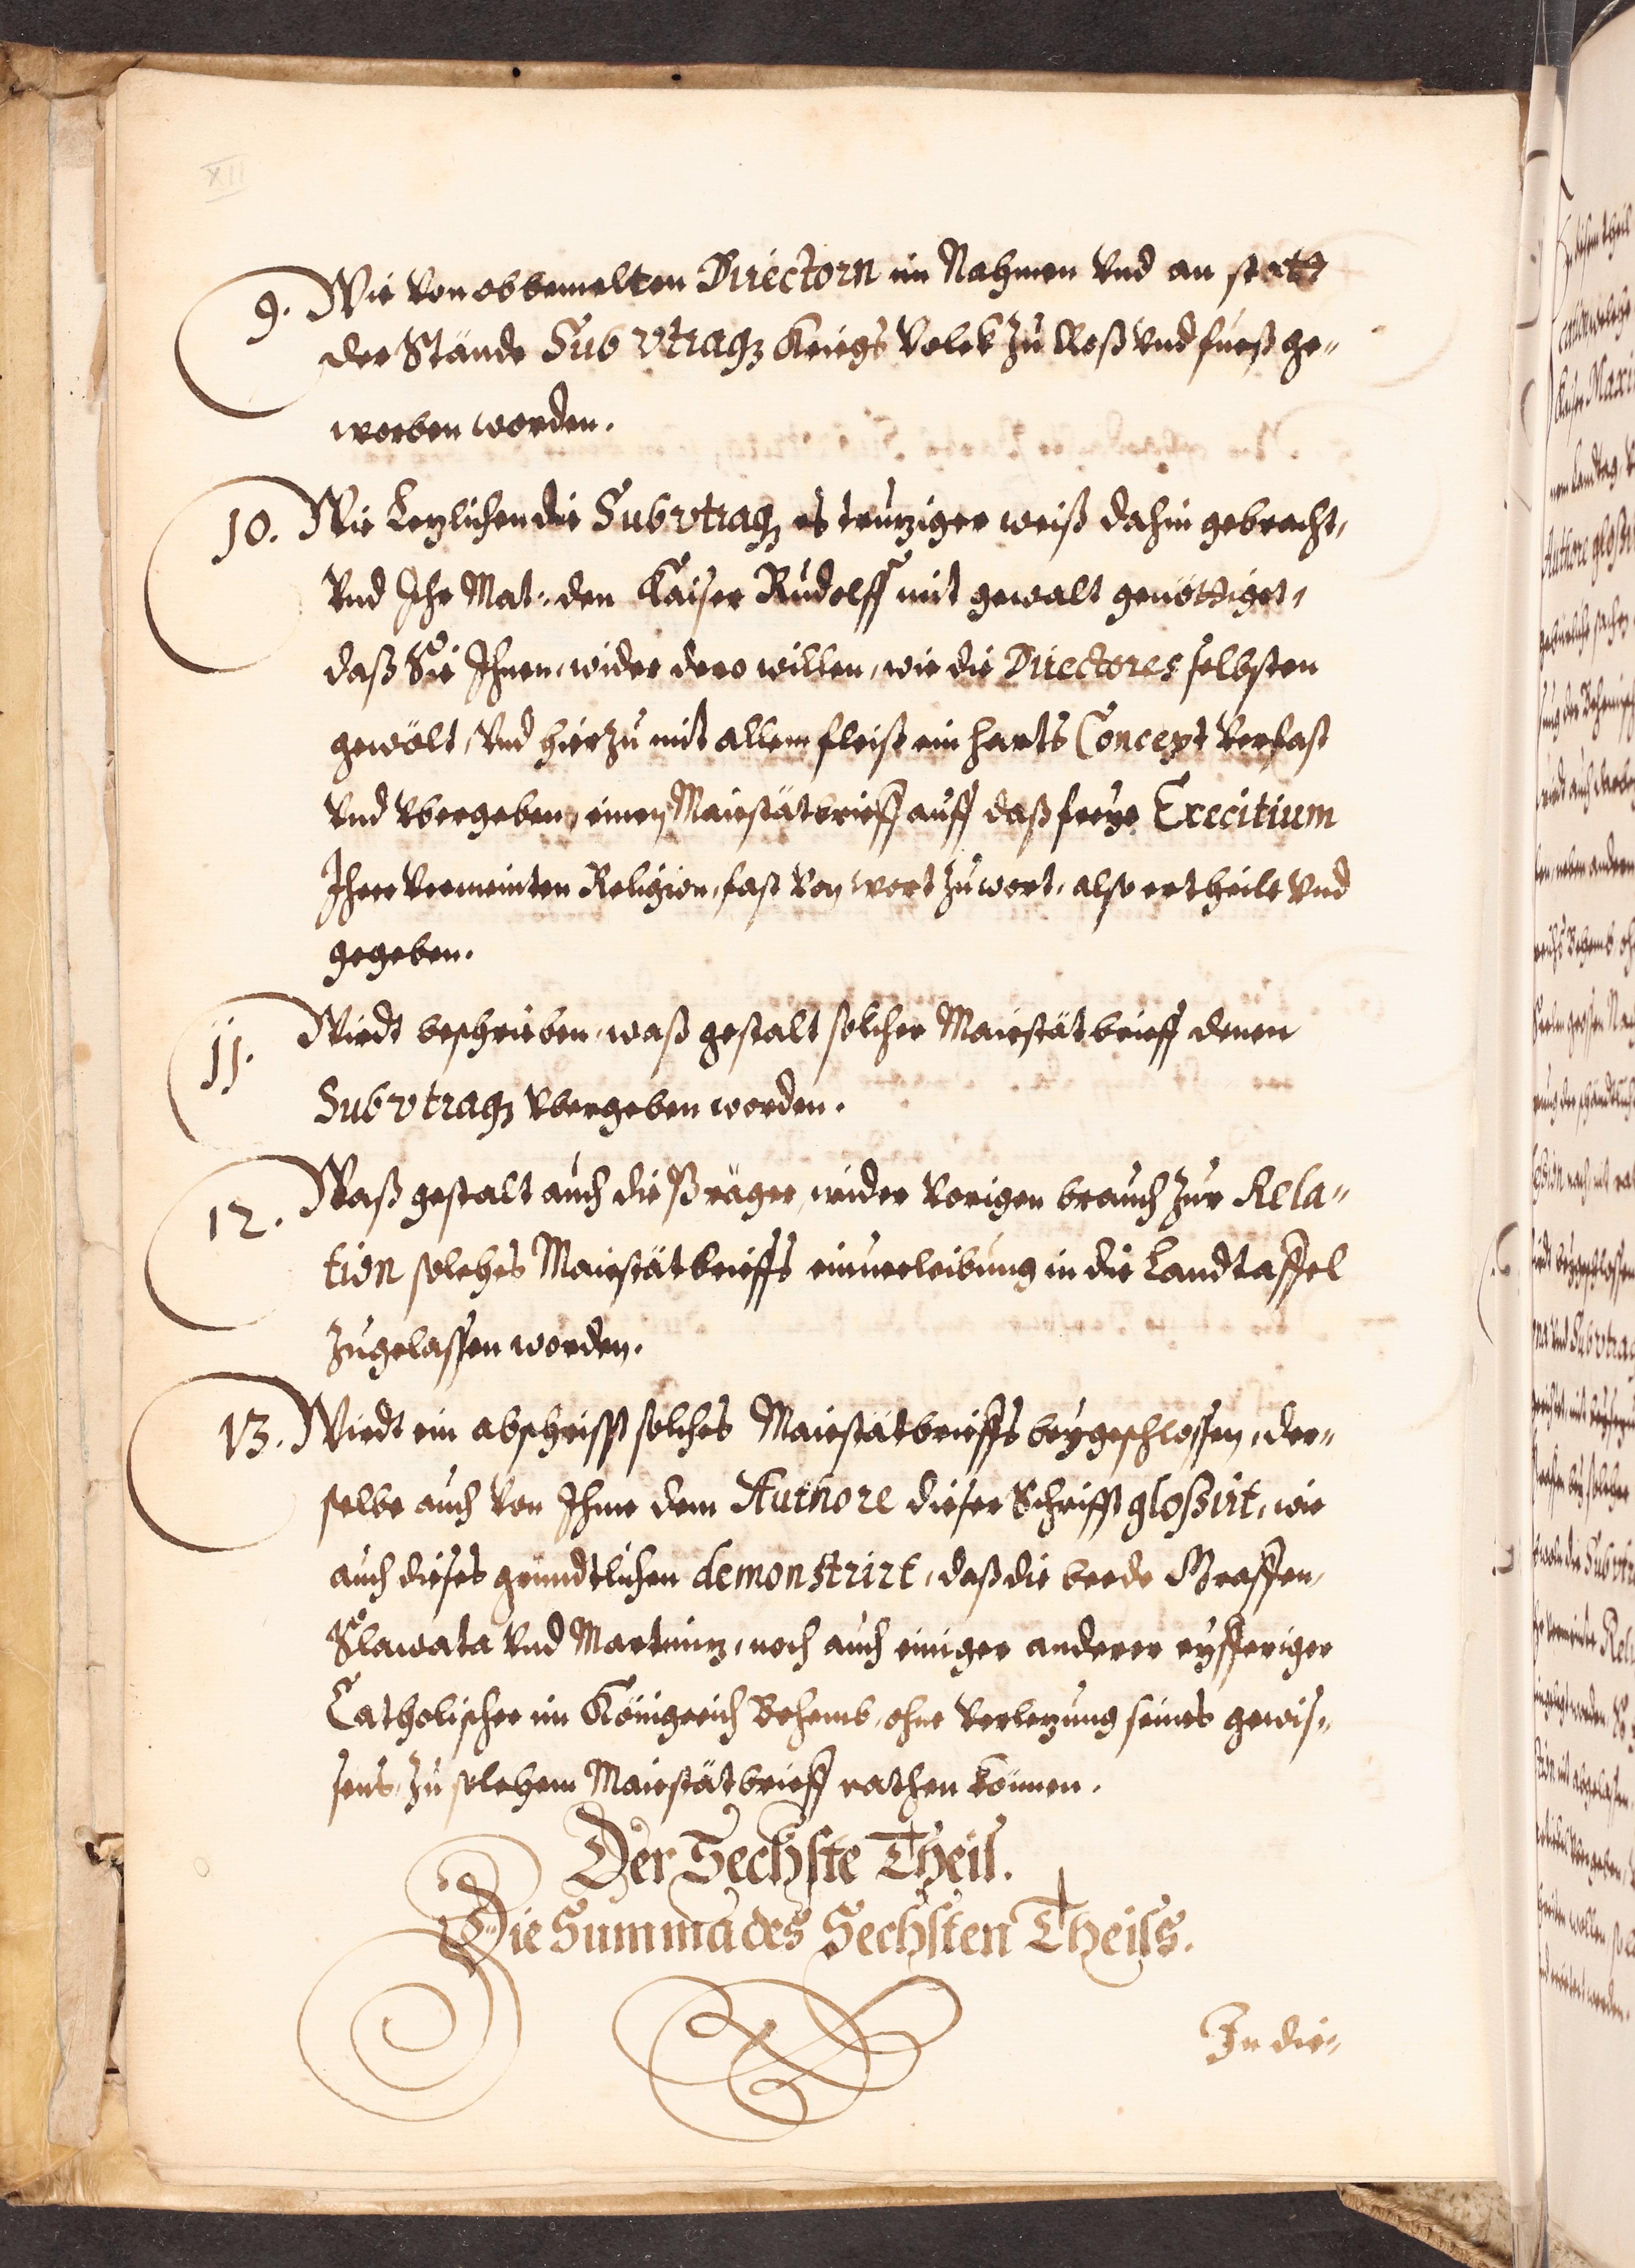 XII
9. Wie von obbemelten Directorn im Nahmen vnd an statt
der Stände Sub vtraq3 Kriegs Volck zu Roß vnd fueß ge=
worben worden.
10. Wie Lezlichen die Sub vtraq3 es truziger weiß dahin gebracht,
vnd Ihr Mat: den Kaiser Rudolff mit gewalt genöttiget,
daß Sie Ihnen, wider dero willen, wie die Directores selbsten
gewölt, vnd hierzu mit allem fleiß ein harts Concept verfast
vnd vbergeben, einen Maiestätbrieff auff daß freye Exercitium
Ihrer vermeinten Religion, fast von wort zu wort, also ertheilt vnd
gegeben.
11. Wirdt beschrieben, waß gestalt solcher Maiestätbrieff denen
Sub vtraq3 vbergeben worden.
12. Waß gestalt auch die Präger, wider vorigen brauch zur Rela=
tion solches Maiestätbrieffs einverleibung in die Landtaffel
zugelassen worden.
13. Wirdt ein abschrifft solches Maiestätbrieffs beygeschlossen, der=
selbe auch von Ihme dem Authore dieser Schrifft gloßirt, wie
auch dieses gründtlichen demonstrirt, daß die beede Graffen,
Slawata vnd Martiniz, noch auch einiger anderer eyfferiger
Catholischer im Königreich Behemb, ohne verlezung seines gewis=
sens, zu solchem Maiestätbrieff rathen können.
Der Sechste Theil.
Die Summa des Sechsten Theils.
In die=